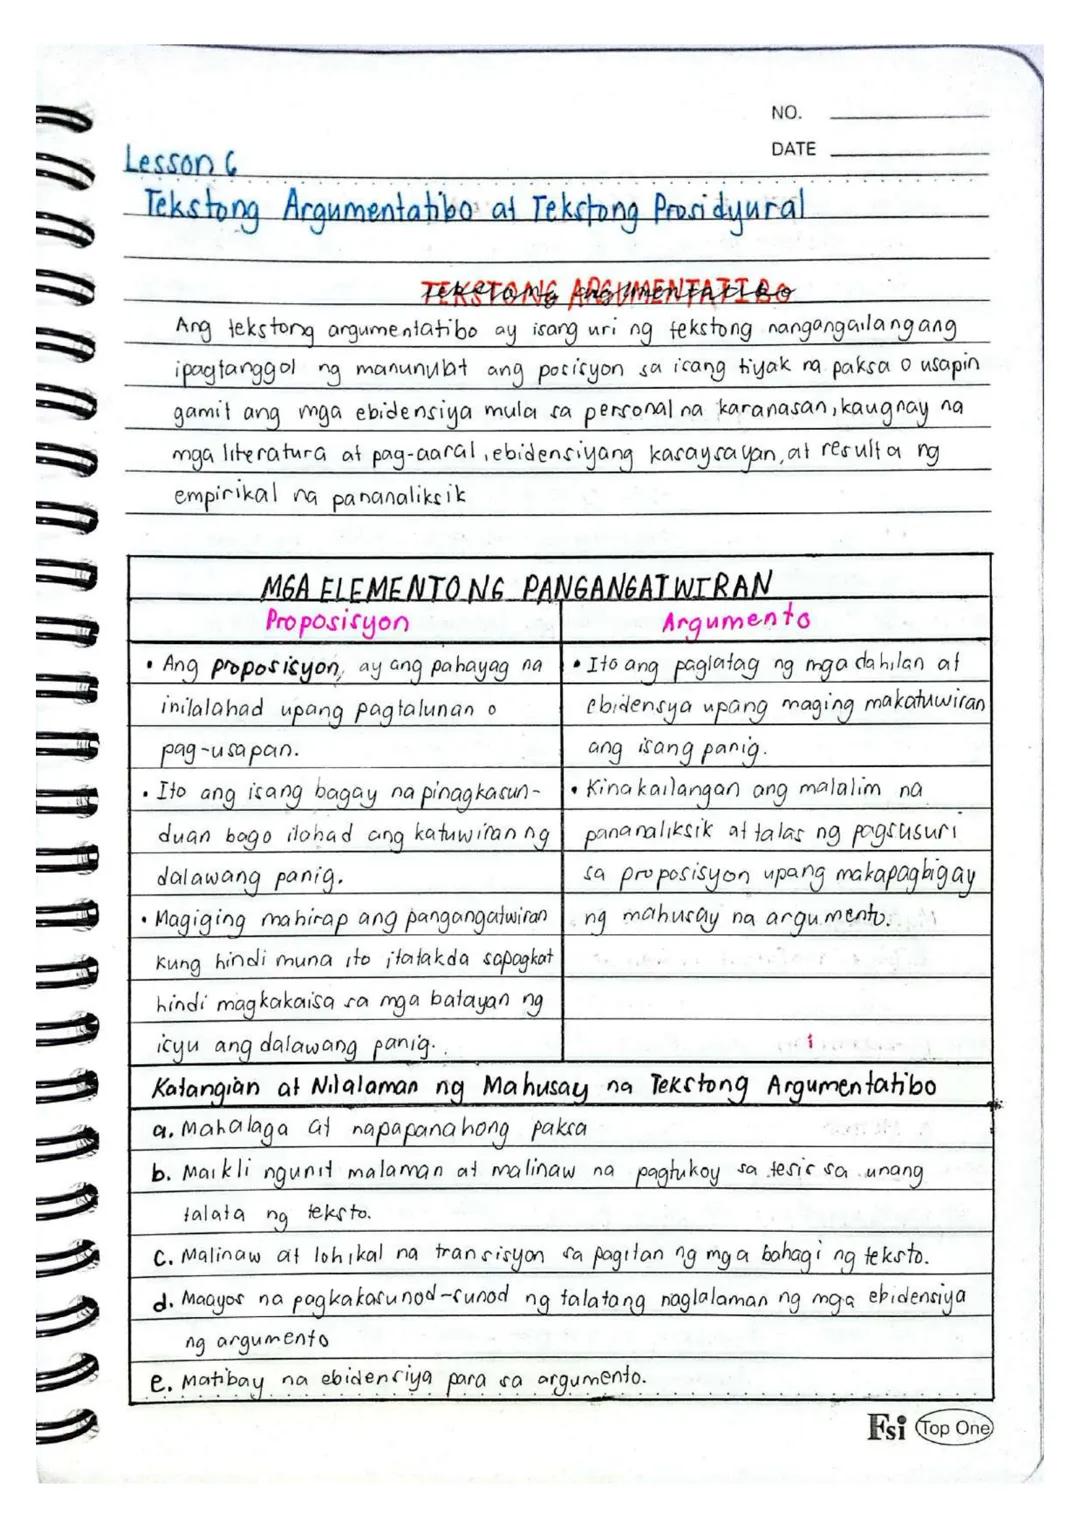 NO.
DATE
Lesson 6
Tekstong Argumentatibo at Tekstong Prosidyural
TEKSTONG ARGUMENTATIBO
Ang tekstong argumentatibo ay isang uri ng tekstong nangangailangang
ipagtanggol ng manunulat ang posisyon sa isang tiyak na paksa o usapin
gamit ang mga ebidensiya mula sa personal na karanasan, kaugnay na
mga literatura at pag-aaral, ebidensiyang kasaysayan, at resulta ng
empirikal na pananaliksik
MGA ELEMENTO NG PANGANGATWIRAN
Proposisyon
• Ang proposisyon, ay ang pahayag na
inilalahad upang pagtalunan o
pag-usapan.
• Ito ang isang bagay na pinagkasun-
duan bago ilahad ang katuwiran ng
dalawang panig.
• Magiging mahirap ang pangangatwiran
kung hindi muna ito itatakda sapagkat
hindi magkakaisa sa mga batayan ng
isyu ang dalawang panig.
Argumento
• Ito ang paglatag ng mga dahilan at
ebidensya upang maging makatuwiran
ang isang panig.
• Kinakailangan ang malalim na
pananaliksik at talas ng pagsusuri
sa proposisyon upang makapagbigay
ng mahusay na argumento.
Katangian at Nilalaman ng Mahusay na Tekstong Argumentatibo
a. Mahalaga at napapanahong paksa
b. Maikli ngunit malaman at malinaw na pagtukoy sa tesis sa unang
talata ng teksto.
c. Malinaw at lohikal na transisyon sa pagitan ng mga bahagi ng teksto.
d. Maayos na pagkakasunod-sunod ng talatang naglalaman ng mga ebidensiya
ng argumento
e. Matibay na ebidensiya para sa argumento.
Fsi Top One